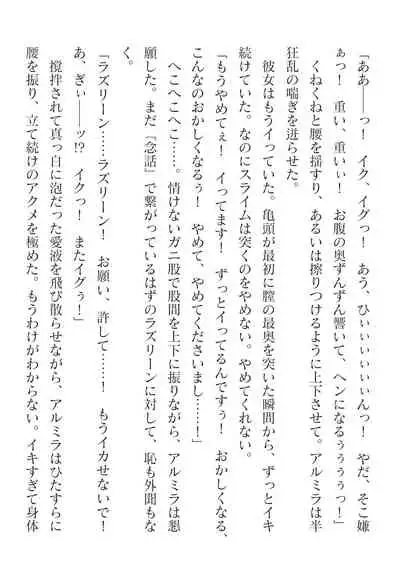 「ああ――っ！　イク、イグっ！　あう、ひぃぃぃぃぃぃんっ！　やだ、そこ嫌
ぁっ！　重い、重いぃ！　お腹の奥ずんずん響いて、ヘンになるぅぅぅっ！」
　くねくねと腰を揺すり、あるいは擦りつけるように上下させて。アルミラは半
狂乱の喘ぎを迸らせた。
　彼女はもうイっていた。亀頭が最初に膣の最奥を突いた瞬間から、ずっとイキ
続けていた。なのにスライムは突くのをやめない。やめてくれない。
「もうやめてぇ！　イってます！　ずっとイってるんですぅ！　おかしくなる、
こんなのおかしくなるぅ！　やめて、やめてくださいまし……！」
　へこへこへこ……。情けないガニ股で股間を上下に振りながら、アルミラは懇
願した。まだ『念話』で繋がっているはずのラズリーンに対して、恥も外聞もな
く。
「ラズリーン……ラズリーン！　お願い、許して……！　もうイカせないで！
あ、ぎぃ――ッ!?　イクっ！　またイグぅ！」
　攪拌されて真っ白に泡だった愛液を飛び散らせながら、アルミラはひたすらに
腰を振り、立て続けのアクメを極めた。もうわけがわからない。イキすぎて身体